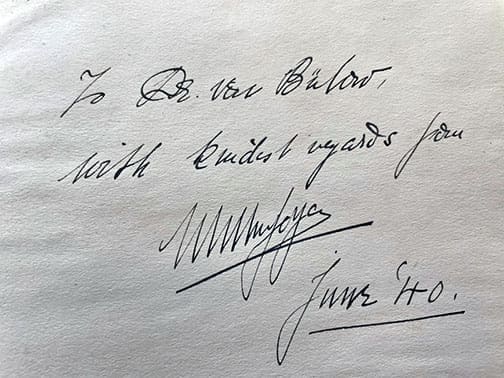 To Dr. van Bülow,
with kindest regards from
June '40.